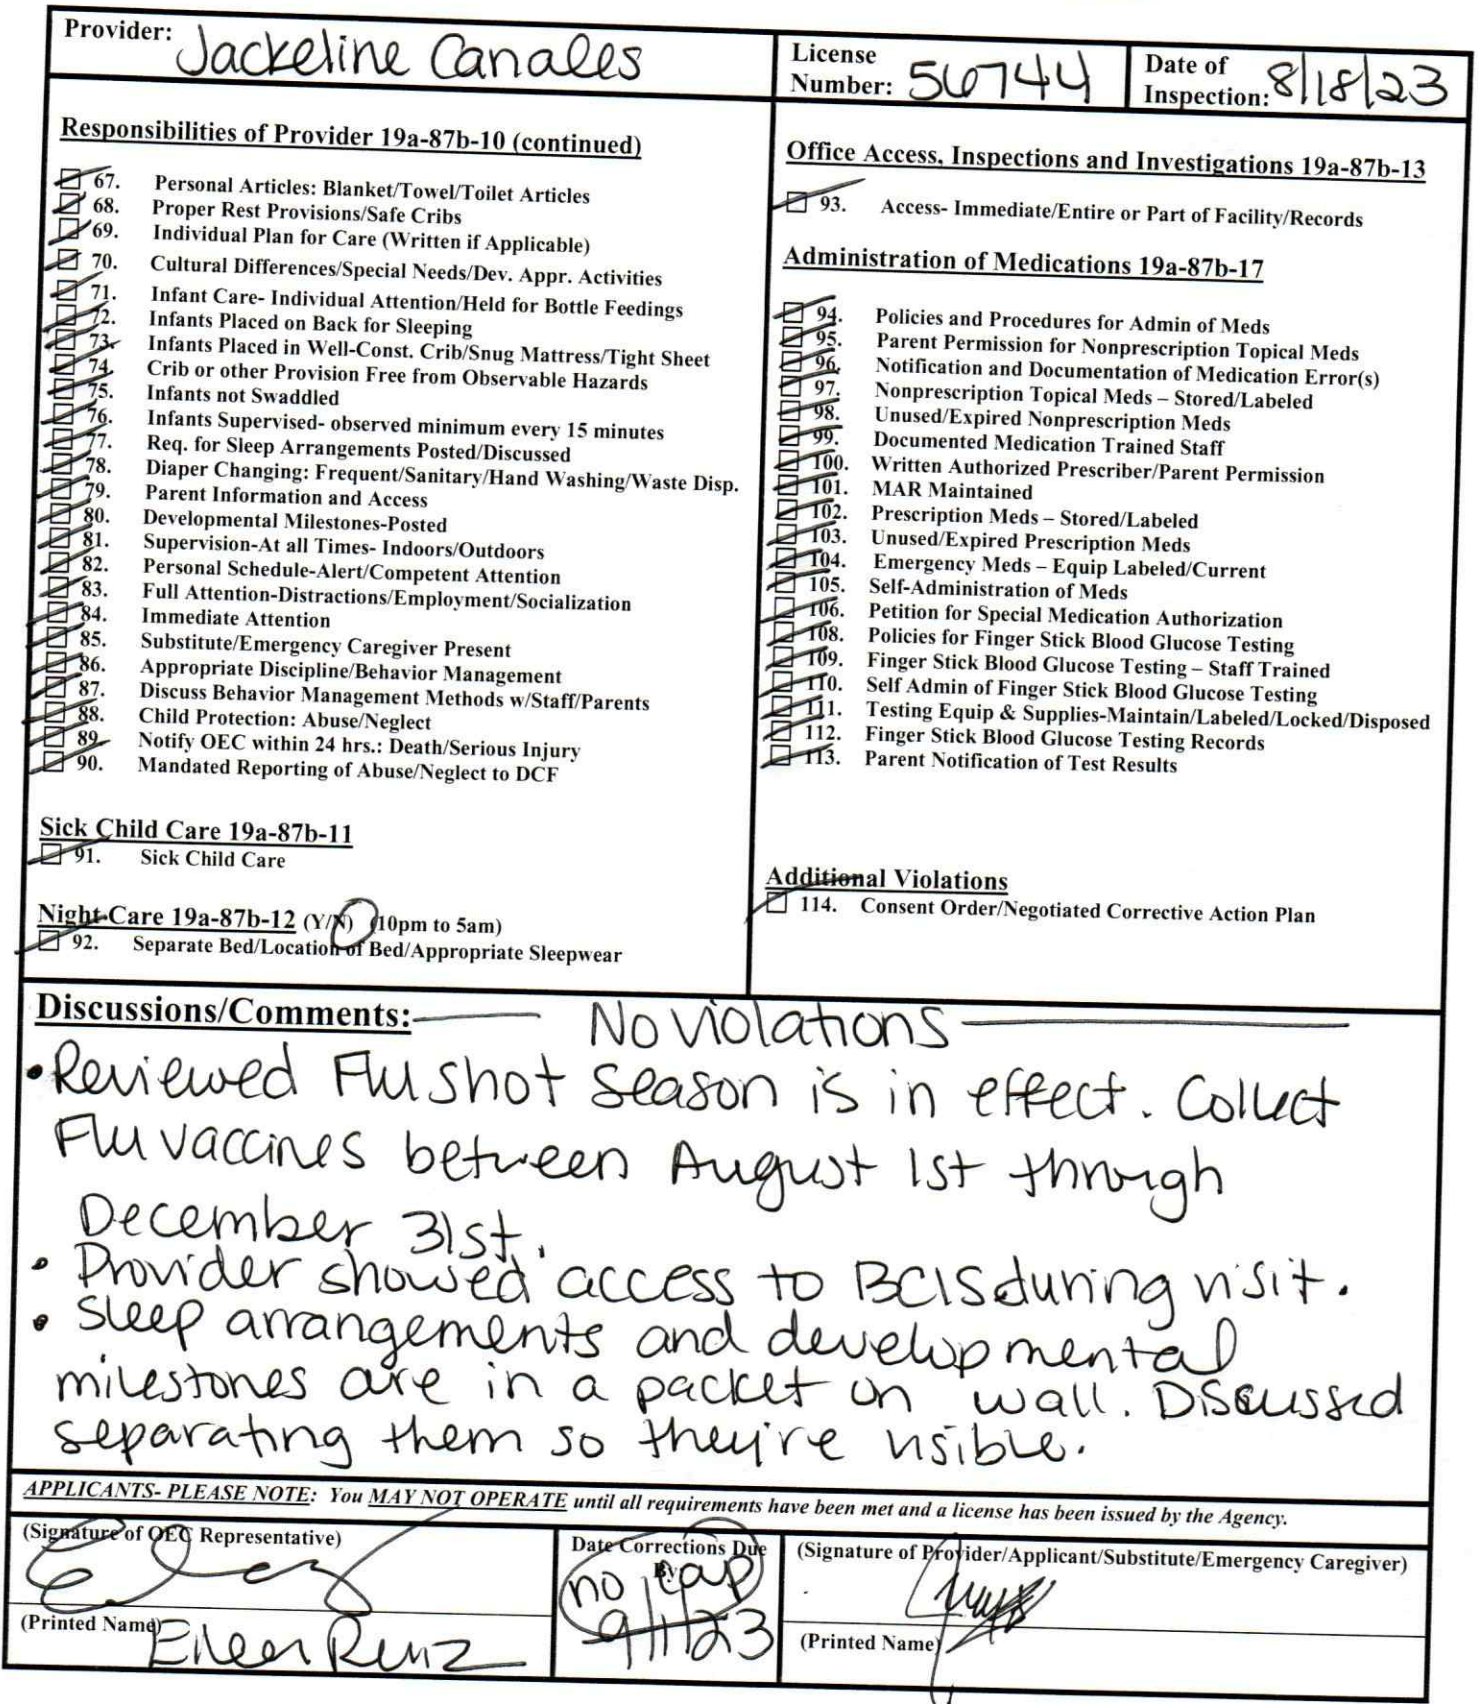 Provider: Jackeline Canales
License Number: 56744
Date of Inspection: 8/18/23
Responsibilities of Provider 19a-87b-10 (continued)
67. Personal Articles: Blanket/Towel/Toilet Articles
68. Proper Rest Provisions/Safe Cribs
69. Individual Plan for Care (Written if Applicable)
70. Cultural Differences/Special Needs/Dev. Appr. Activities
71. Infant Care- Individual Attention/Held for Bottle Feedings
72. Infants Placed on Back for Sleeping
73. Infants Placed in Well-Const. Crib/Snug Mattress/Tight Sheet
74. Crib or other Provision Free from Observable Hazards
75. Infants not Swaddled
76. Infants Supervised- observed minimum every 15 minutes
77. Req. for Sleep Arrangements Posted/Discussed
78. Diaper Changing: Frequent/Sanitary/Hand Washing/Waste Disp.
79. Parent Information and Access
80. Developmental Milestones-Posted
81. Supervision-At all Times- Indoors/Outdoors
82. Personal Schedule-Alert/Competent Attention
83. Full Attention-Distractions/Employment/Socialization
84. Immediate Attention
85. Substitute/Emergency Caregiver Present
86. Appropriate Discipline/Behavior Management
87. Discuss Behavior Management Methods w/Staff/Parents
88. Child Protection: Abuse/Neglect
89. Notify OEC within 24 hrs.: Death/Serious Injury
90. Mandated Reporting of Abuse/Neglect to DCF
Sick Child Care 19a-87b-11
91. Sick Child Care
Night Care 19a-87b-12 (Y/N) (10pm to 5am)
92. Separate Bed/Location of Bed/Appropriate Sleepwear
Office Access, Inspections and Investigations 19a-87b-13
93. Access- Immediate/Entire or Part of Facility/Records
Administration of Medications 19a-87b-17
94. Policies and Procedures for Admin of Meds
95. Parent Permission for Nonprescription Topical Meds
96. Notification and Documentation of Medication Error(s)
97. Nonprescription Topical Meds – Stored/Labeled
98. Unused/Expired Nonprescription Meds
99. Documented Medication Trained Staff
100. Written Authorized Prescriber/Parent Permission
101. MAR Maintained
102. Prescription Meds – Stored/Labeled
103. Unused/Expired Prescription Meds
104. Emergency Meds – Equip Labeled/Current
105. Self-Administration of Meds
106. Petition for Special Medication Authorization
108. Policies for Finger Stick Blood Glucose Testing
109. Finger Stick Blood Glucose Testing – Staff Trained
110. Self Admin of Finger Stick Blood Glucose Testing
111. Testing Equip & Supplies-Maintain/Labeled/Locked/Disposed
112. Finger Stick Blood Glucose Testing Records
113. Parent Notification of Test Results
Additional Violations
114. Consent Order/Negotiated Corrective Action Plan
Discussions/Comments: No violations
• Reviewed Flu shot season is in effect. Collect
Flu vaccines between August 1st through
December 31st.
• Provider showed access to BCIS during visit.
• Sleep arrangements and developmental
milestones are in a packet on wall. Discussed
separating them so they're visible.
APPLICANTS- PLEASE NOTE: You MAY NOT OPERATE until all requirements have been met and a license has been issued by the Agency.
(Signature of OEC Representative)
(Printed Name) Eileen Ruiz
Date Corrections Due
By:
no cap
9/1/23
(Signature of Provider/Applicant/Substitute/Emergency Caregiver)
(Printed Name)